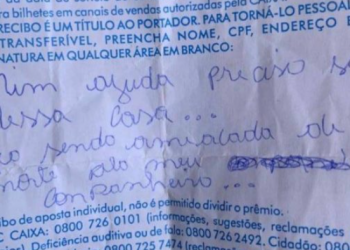 ra bilhetes em canais de vendas autorizadas pela CAIXA
RECIBO É UM TÍTULO AO PORTADOR. PARA TORNÁ-LO PESSOAL
TRANSFERÍVEL, PREENCHA NOME, CPF, ENDEREÇO E
NATURA EM QUALQUER ÁREA EM BRANCO:
mim ajuda preciso s
dessa casa...
sendo ameacada de
morte pelo meu
companheiro...
ibo de aposta individual, não é permitido dividir o prêmio.
C CAIXA: 0800 726 0101 (informações, sugestões, reclamações
Deficiência auditiva ou de fala: 0800 726 2492. Cidadão: 080
0800 725 7474 (reclama